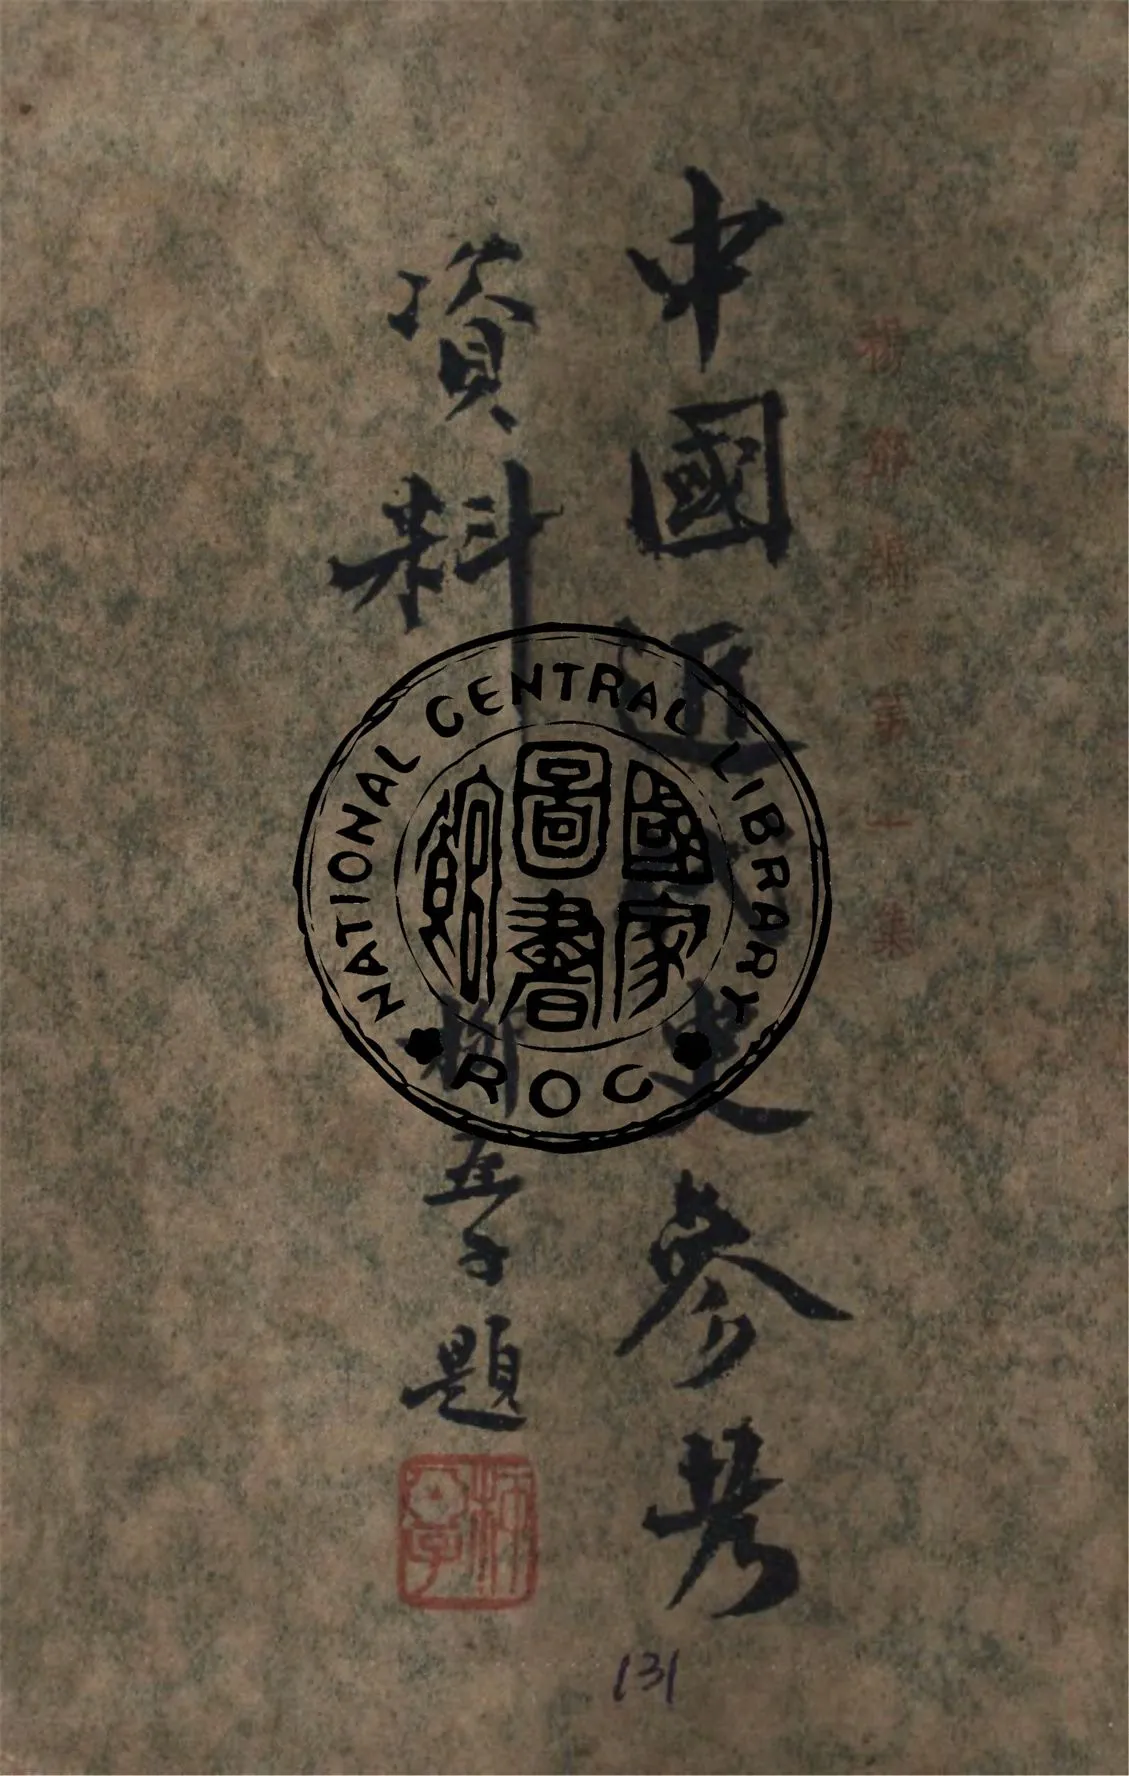 中國近代史參考
資料
柳亞子題
NATIONAL CENTRAL LIBRARY
國家
圖書
館
ROC
131